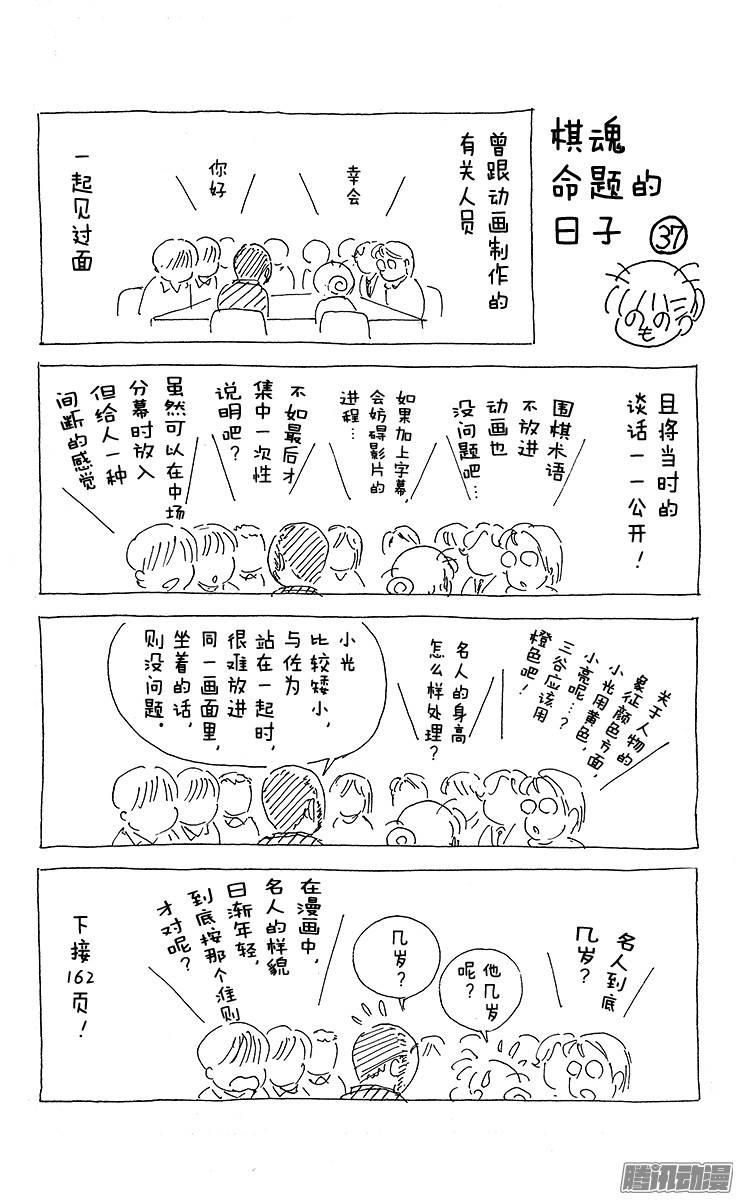 棋魂
命题的
日子 37
のの
も
曾跟动画制作的
有关人员
幸会
你好
一起见过面
且将当时的
谈话一一公开！
围棋术语
不放进
动画也
没问题吧…
如果加上字幕，
会妨碍影片的
进程…
不如最后才
集中一次性
说明吧？
虽然可以在中场
分幕时放入
但给人一种
间断的感觉
关于人物
象征颜色方面，
小光用黄色，
小亮呢…？
三谷应该用
橙色吧！
名人的身高
怎么样处理？
小光
比较矮小，
与佐为
站在一起时，
很难放进
同一画面里，
坐着的话，
则没问题。
名人到底
几岁？
他几岁
呢？
几岁？
在漫画中，
名人的样貌
日渐年轻，
到底按那个准则
才对呢？
下接
162
页！
腾讯动漫